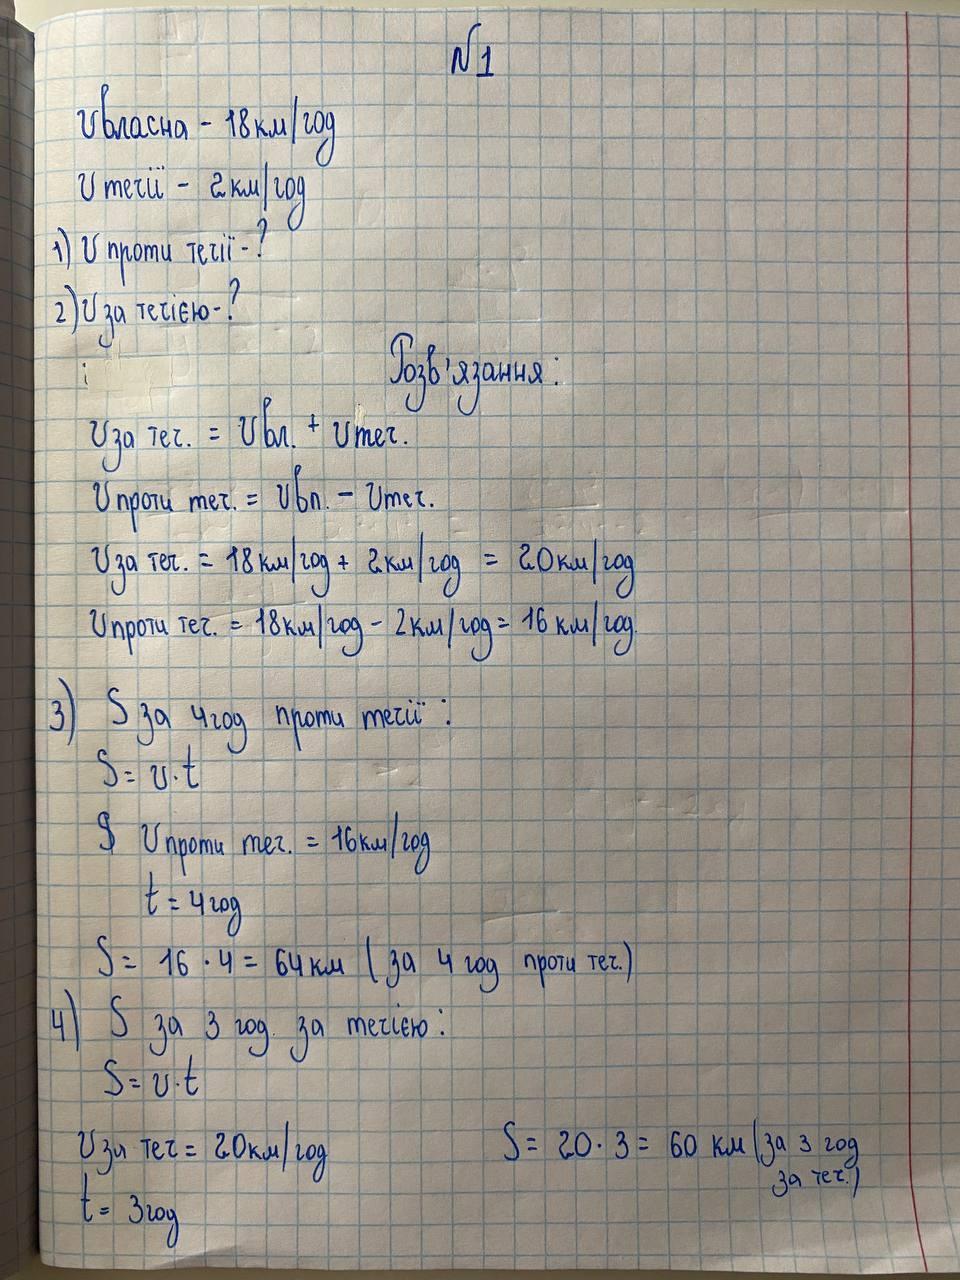 N1
Vвласна - 18км/год
V течії - 2км/год
1) V проти течії - ?
2) V за течією - ?
і
Розв'язання:
Vза теч. = Vвл. + Vтеч.
Vпроти теч. = Vвл. - Vтеч.
Vза теч. = 18км/год + 2км/год = 20км/год
Vпроти теч. = 18км/год - 2км/год = 16км/год.
3) S за 4год проти течії:
S = v·t
S Vпроти теч. = 16км/год
t = 4год
S = 16 · 4 = 64км (за 4 год проти теч.)
4) S за 3 год. за течією:
S = v·t
Vза теч = 20км/год
t = 3год
S = 20 · 3 = 60 км (за 3 год
за теч.)